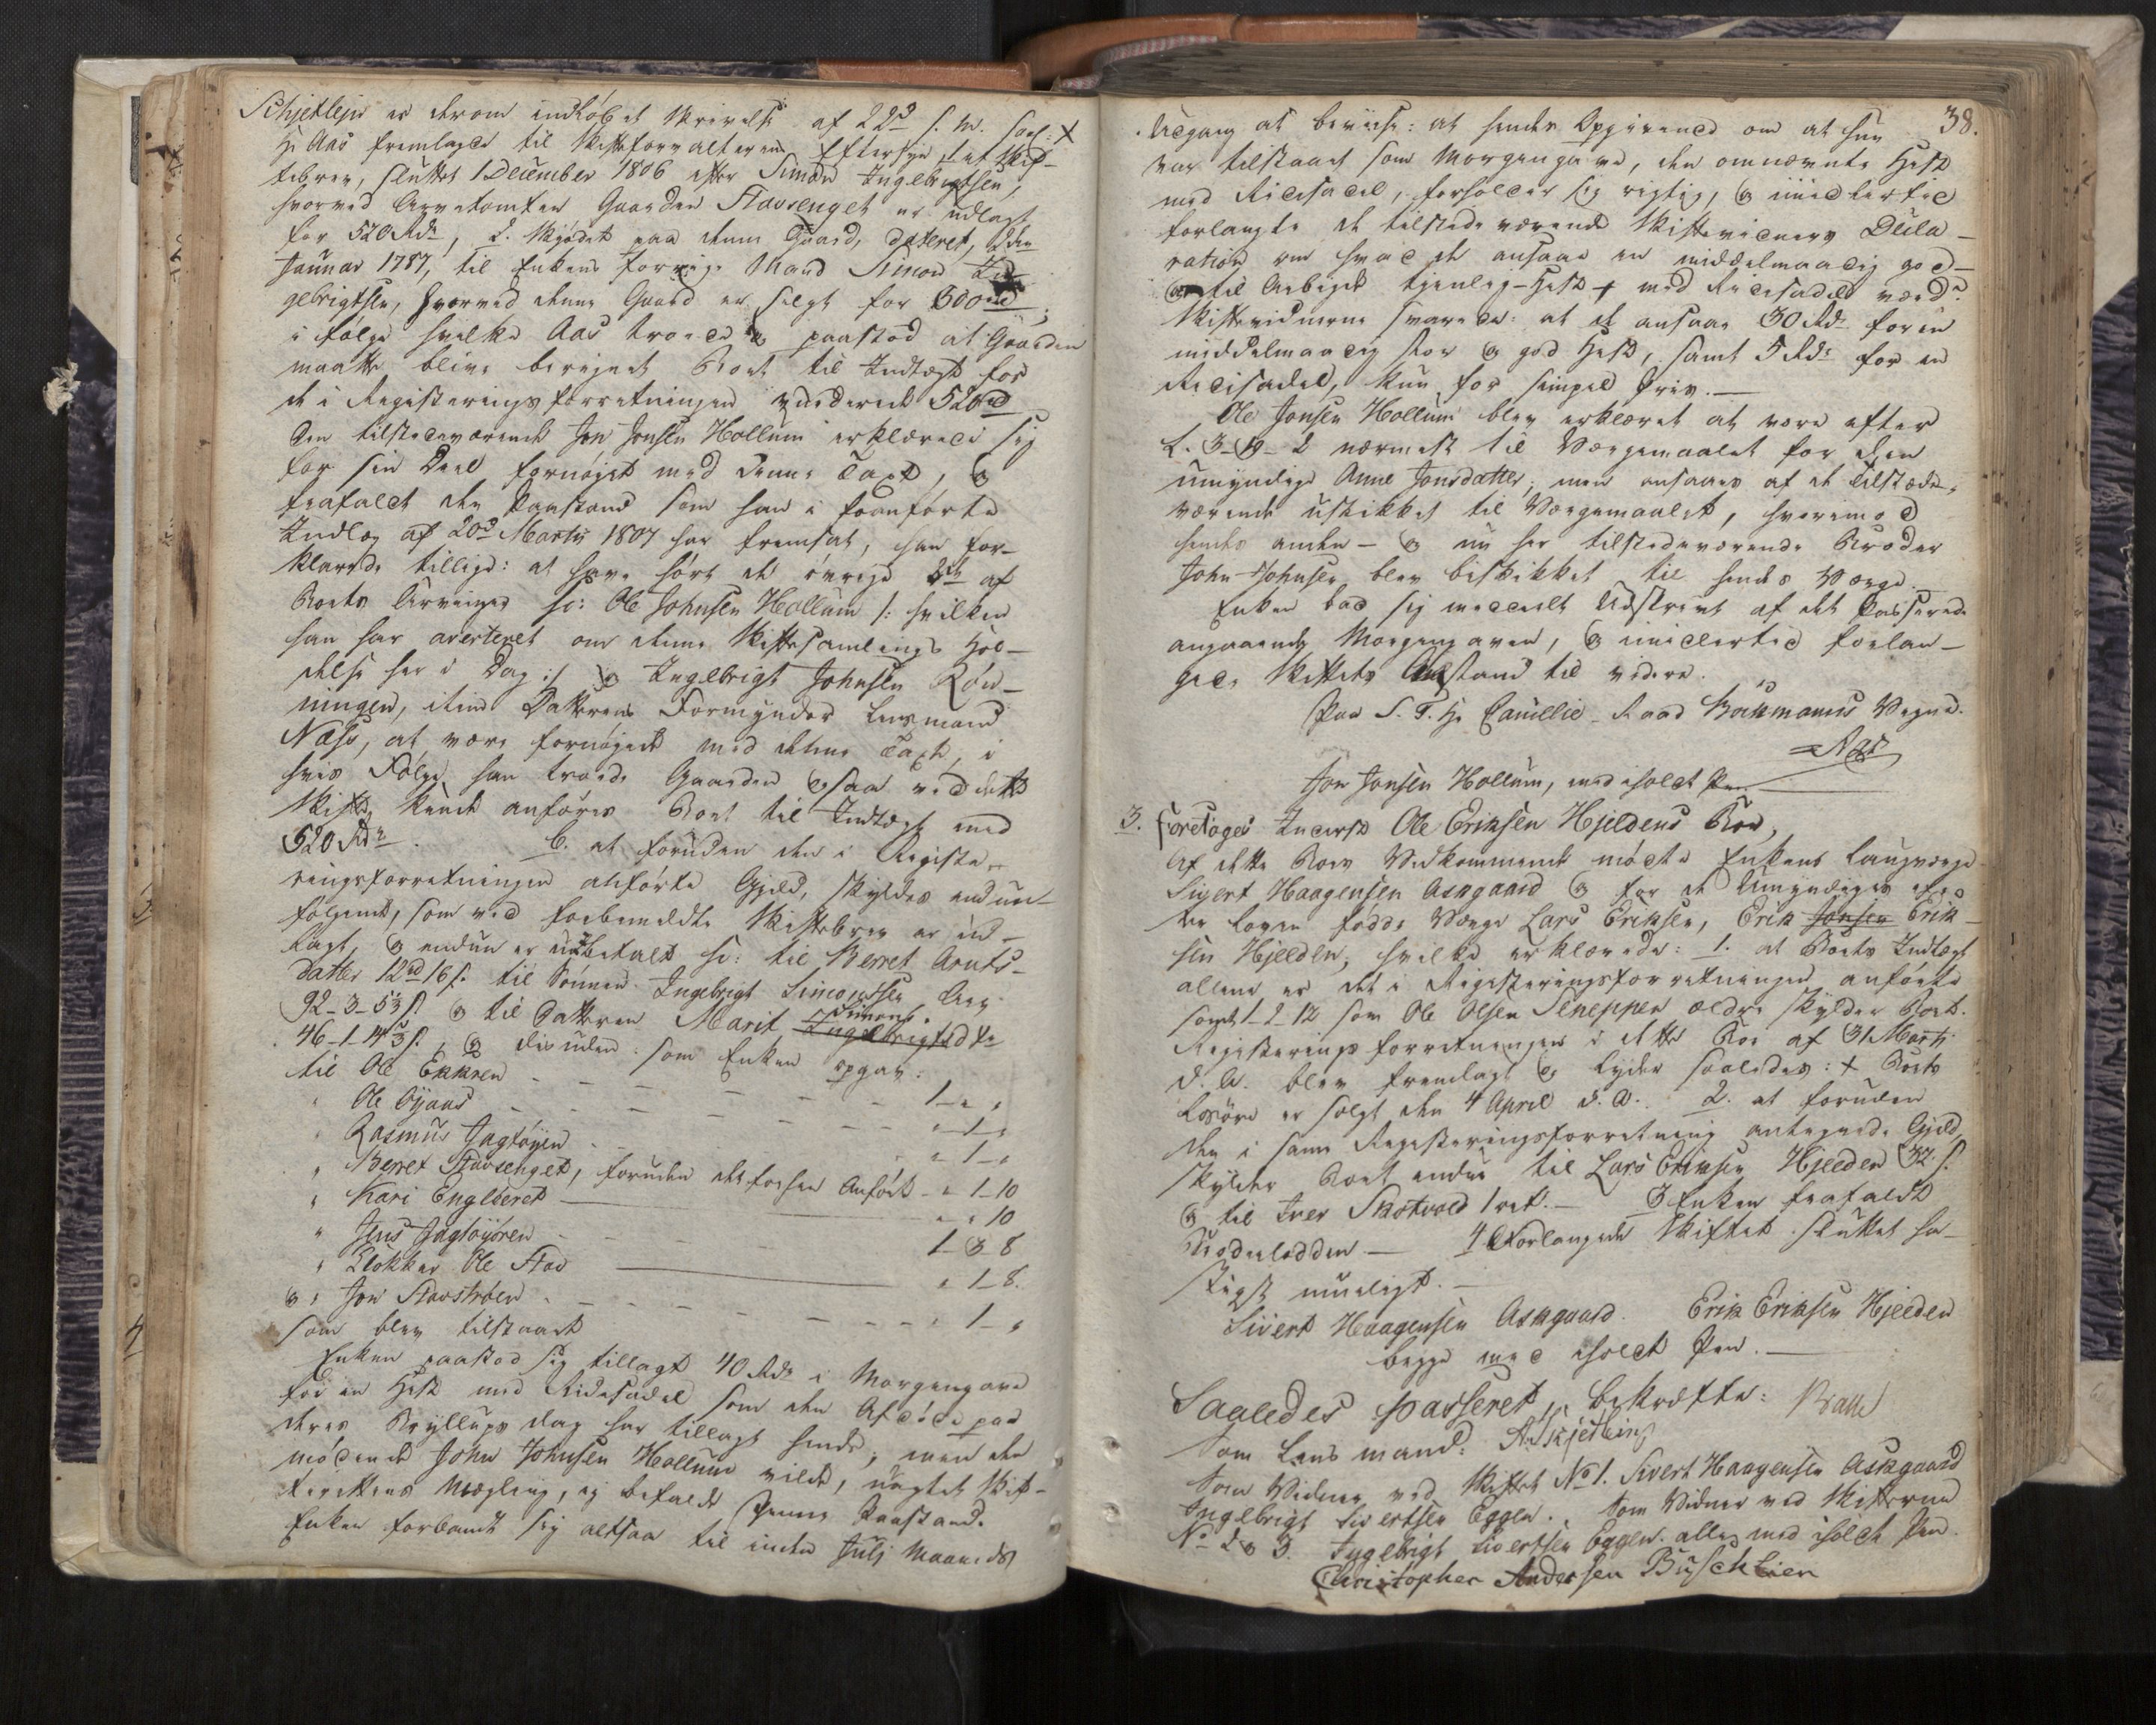 Schjetleju er derom indløbet Skrivelse af 22d s. M. saal: +
Hr Aas fremlagde til Skifteforvalterens Eftersyn 1. et Skif-
tebrev, sluttet 1 December 1806 efter Simon Ingebrigtsen,
hvorved Arvetomten Gaarden Stavsenget er udlagt
for 520 Rdr, 2. Skjødet paa denne Gaard, dateret, 2den
Januar 1787, til Enkens forrige Mand Simon In-
gebrigtsen, hvorved denne Gaard er solgt for 300 rd;
i følge hvilke Aas troede og paastod at Gaarden
maatte blive beregnet Boet til Indtægt for
de i Registeringsforretningen vurderede 520 rd
Den tilstedeværende Jon Jonsen Hollum erklærede sig
for sin Deel fornøiet med denne Taxt, og
frafaldt den Paastand som han i foranførte
Indlæg af 20d Martii 1807 har fremsat, han for-
klarede tillige: at have hørt de øvrige 2de af
Boets Arvinger sc: Ole Johnsen Hollum /: hvilken
han har averteret om denne Skiftesamlings Hol-
delse her i Dag :/ og Ingebrigt Johnsen Røn-
ningen, item Datterens Formynder Lensmand
Næss, at være fornøyede med denne Taxt, i
hvis Følge han troede Gaarden ogsaa ved dette
Skifte kunde anføres Boet til Indtægt med
520 Rdr. C. at foruden den i Registe-
ringsforretningen anførte Gjeld, skyldes endnu
følgende, som ved forbemeldte Skiftebrev er ud-
lagt, og endnu er ubetalt sc: til Berret Arnts-
datter 12 rd 16 s. til Sønnen Ingebrigt Simonsen Arv
92-3-5⅓ s. og til Datteren Marit Simons Ingebrigtsdtr
46-1-14⅔ s., og desuden som Enken opgav:
til Ole Ekkren - - - - - 1 - " "
" Ole Øyaas - - - - - " - 1 - "
" Rasmus Jagtøyen - - - " - 1 - "
" Berret Stavsenget, foruden det forhen Anført - " 1 - 10
" Kari Englberet " - " 10
" Jens Jagtøyøren - - - 1 - 3 - 8
" Klokker Ole Stav " 1 - 8.
og " Jon Stavstrøen - - - - " 1 - "
som blev tilstaaet
Enken paastod sig tillagt 40 Rdr i Morgengave
for en Hest med Ridesadel som den Afdøde paa
deres Bryllups dag har tillagt hende; men den
mødende John Johnsen Hollum vilde, uagtet Skif-
terettens Mægling, ej befalde denne Paastand.
Enken forbandt sig altsaa til inden Julj Maaneds
38.
Udgang at beviise: at hendes Opgivende om at hun
var tilstaaet som Morgengave, den omnævnte Hest
med Ridesadel, forholder sig rigtig, og imidlertid
forlangte de tilstedeværende Skiftevidners Decla-
ration om hvad de ansaae en middelmaadig god
og til Arbejde tjenlig Hest + med Ridesadel værd?
Skiftevidnerne svarede: at de ansaae 30 Rdr for en
middelmaadig stor og god Hest, samt 5 Rdr for en
Ridesadel, kun for simpel Priis.
Ole Jonsen Hollum blev erklæret at være efter
L. 3-19-2 nærmest til Værgemaalet for den
umyndige Anne Jonsdatter, men ansaaes af de tilstæde-
værende uskikket til Værgemaalet, hvorimod
hendes anden - og nu her tilstedeværende Broder
John Johnsen blev beskikket til hendes Værge.
Enken bad sig meddeelt Udskrivt af det Passerede
angaaende Morgengaven, og imidlertid forlan-
gede Skiftets Anstand til videre.
Paa S. T. Hr Cancellie-Raad Bækmanns Vegne.
Aas
Jon Jonsen Hollum, med iholdt Pen
3. foretoges Inderst Ole Eriksen Hjeldens Boe,
Af dette Boes Vedkommende mødte Enkens Laugværge
Sivert Haagensen Askgaard og for de Umyndiges ef-
ter Loven fødde Værge Lars Eriksen, Erik Jonsen Erik-
sen Hjelden, hvilke erklærede: 1. at Boets Indtægt
allene er det i Registeringsforretningen anførte
samt 1-2-12 som Ole Olsen Sleneppen ældre skylder Boet.
Registeringsforretningen i dette Boe af 31 Martii
d. A. blev fremlagt og lyder saaledes: + Boets
Løsøre er solgt den 4 April d. A. 2. at foruden
den i samme Registeringsforretning antegnede Gjeld,
skylder Boet endnu til Lars Eriksen Hjelden 32 s.
og til Iver Skotvold 1 ort. - 3 Enken frafaldt
Broderlodden - 4 Forlangede Skiftet sluttet ha-
stigst mueligt.
Sivert Haagensen Askgaard. Erik Eriksen Hjelden
begge med iholdt Pen.
Saaledes passeret, bekræfter: Brauer
Som Lensmand: A. Skjetleing
Som Vidner ved Skiftet No 1. Sivert Haagensen Askgaard
Ingebrigt Sivertsen Eggen. Som Vidner ved Skifterne
No 2 og 3. Ingebrigt Sivertsen Eggen. alle med iholdt Pen.
Christopher Andersen Buschlien